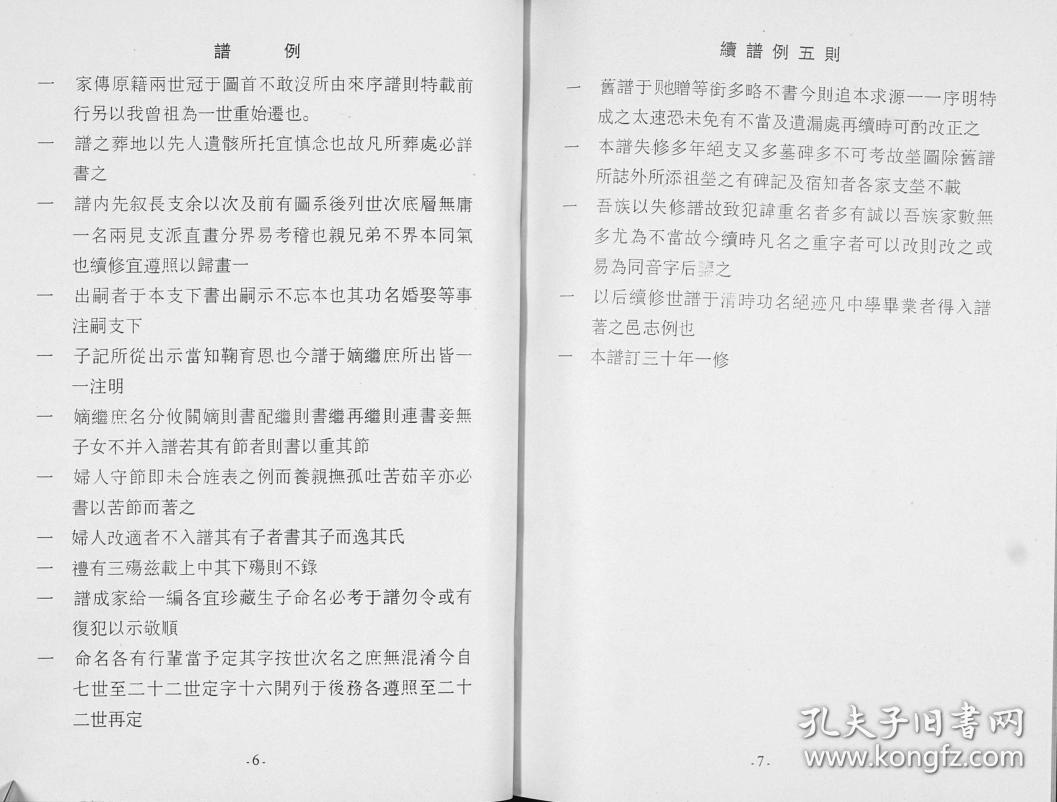 譜　例
一　家傳原籍兩世冠于圖首不敢沒所由來序譜則特載前
行另以我曾祖為一世重始遷也。
一　譜之葬地以先人遺骸所托宜慎念也故凡所葬處必詳
書之
一　譜内先叙長支余以次及前有圖系後列世次底層無庸
一名兩見支派直畫分界易考稽也親兄弟不界本同氣
也續修宜遵照以歸畫一
一　出嗣者于本支下書出嗣示不忘本也其功名婚娶等事
注嗣支下
一　子記所從出示當知鞠育恩也今譜于嫡繼庶所出皆一
一注明
一　嫡繼庶名分攸關嫡則書配繼則書繼再繼則連書妾無
子女不并入譜若其有節者則書以重其節
一　婦人守節即未合旌表之例而養親撫孤吐苦茹辛亦必
書以苦節而著之
一　婦人改適者不入譜其有子者書其子而逸其氏
一　禮有三殤兹載上中其下殤則不錄
一　譜成家給一編各宜珍藏生子命名必考于譜勿令或有
復犯以示敬順
一　命名各有行輩當予定其字按世次名之庶無混淆今自
七世至二十二世定字十六開列于後務各遵照至二十
二世再定
-6-
續譜例五則
一　舊譜于貤贈等銜多略不書今則追本求源一一序明特
成之太速恐未免有不當及遺漏處再續時可酌改正之
一　本譜失修多年絕支又多墓碑多不可考故塋圖除舊譜
所誌外所添祖塋之有碑記及宿知者各家支塋不載
一　吾族以失修譜故致犯諱重名者多有誠以吾族家數無
多尤為不當故今續時凡名之重字者可以改則改之或
易為同音字后鑒之
一　以后續修世譜于清時功名絕迹凡中學畢業者得入譜
著之邑志例也
一　本譜訂三十年一修
-7-
孔夫子旧書网
www.kongfz.com